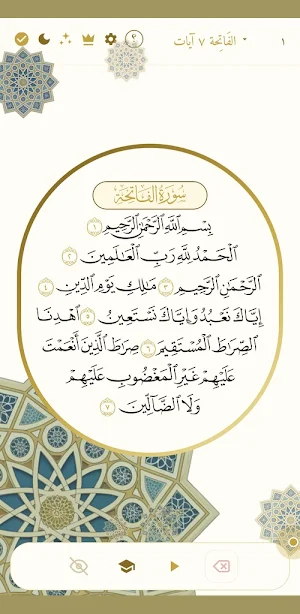 الفَاتِحة ٧ آيات ١
سُورَةُ الفَاتِحَةِ
بِسْمِ ٱللَّهِ ٱلرَّحْمَٰنِ ٱلرَّحِيمِ ١
ٱلْحَمْدُ لِلَّهِ رَبِّ ٱلْعَٰلَمِينَ ٢
ٱلرَّحْمَٰنِ ٱلرَّحِيمِ ٣ مَٰلِكِ يَوْمِ ٱلدِّينِ ٤
إِيَّاكَ نَعْبُدُ وَإِيَّاكَ نَسْتَعِينُ ٥ ٱهْدِنَا
ٱلصِّرَٰطَ ٱلْمُسْتَقِيمَ ٦ صِرَٰطَ ٱلَّذِينَ أَنْعَمْتَ
عَلَيْهِمْ غَيْرِ ٱلْمَغْضُوبِ عَلَيْهِمْ
وَلَا ٱلضَّآلِّينَ ٧